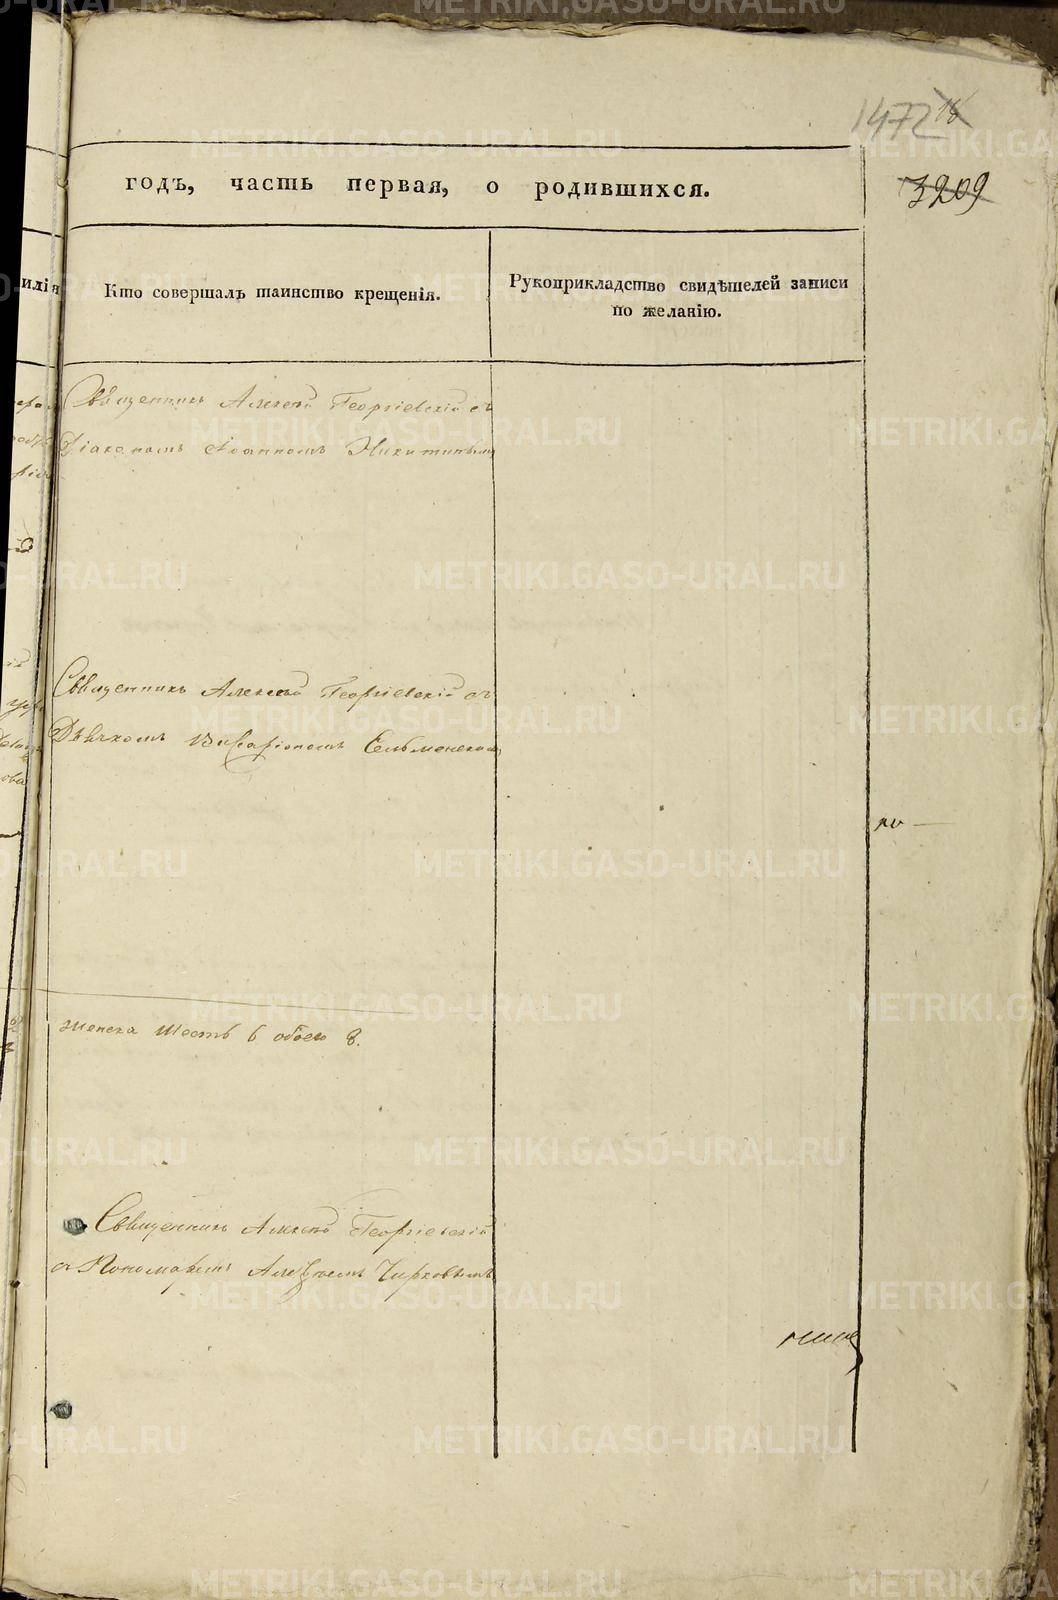 1472 16
3209
годъ, часть первая, о родившихся.
илія
Кто совершалъ таинство крещенія.
Рукоприкладство свидѣтелей записи
по желанію.
Священникъ Алексѣй Георгіевскій съ
Діакономъ Іоанномъ Никитинымъ
Священникъ Алексѣй Георгіевскій съ
Дьячкомъ Висаріономъ
женска шесть 6 обоего 8.
Священникъ Алексѣй Георгіевскій
съ Пономаремъ Алексѣемъ Чирковымъ
METRIKI.GASO-URAL.RU